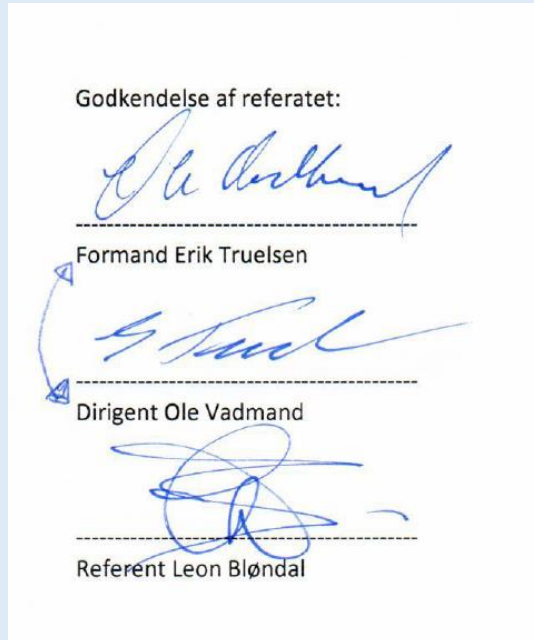 Godkendelse af referatet:
Formand Erik Truelsen
Dirigent Ole Vadmand
Referent Leon Bløndal